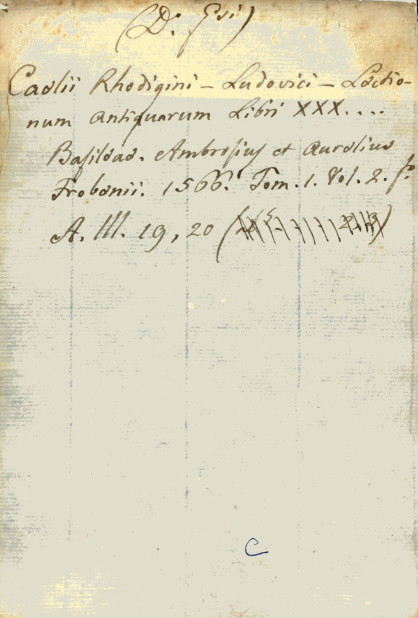 (D. Esi)
Caelii Rhodigini – Ludovici – Lectio-
num Antiquarum Libri XXX....
Basileae. Ambrosius et Aurelius
Frobenii. 1566. Tom. 1. Vol. 2. fo.
A. III. 19, 20
C